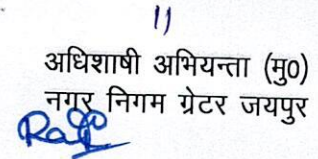 11
अधिशाषी अभियन्ता (मु0)
नगर निगम ग्रेटर जयपुर